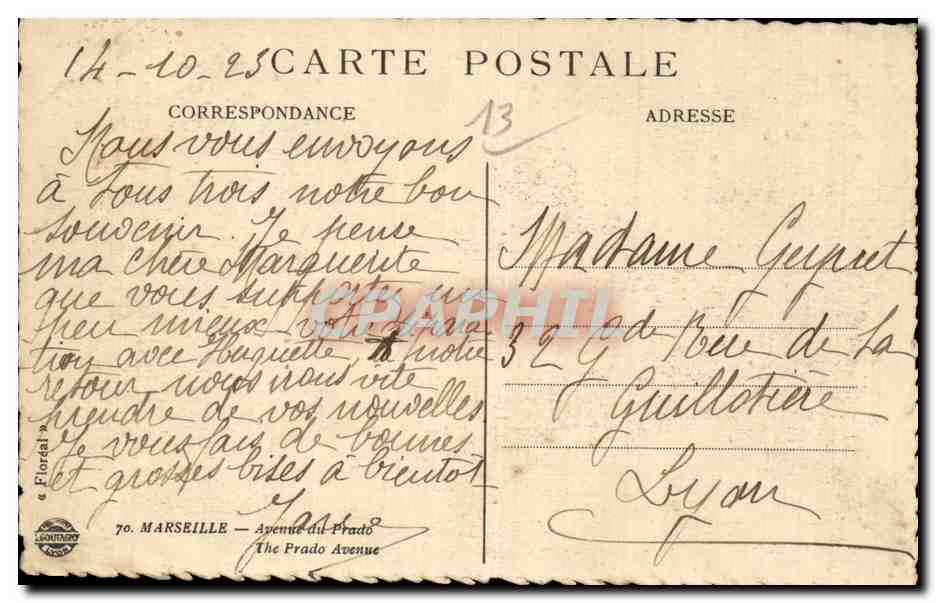 14-10-23
CARTE POSTALE
CORRESPONDANCE
13
ADRESSE
Nous vous envoyons
à tous trois notre bon
souvenir. Je pense
ma chère Marguerite
que vous supportez un
peu mieux votre sépara
tion avec Huguette, à notre
retour nous irons vite
prendre de vos nouvelles
Je vous fais de bonnes
et grosses bises à bientôt
Madame
32 Gde Rue de la
Guillotière
Lyon
CPAPHIL
« Floréal »
70. MARSEILLE — Avenue du Prado
The Prado Avenue
GOUTAGNY
LYON